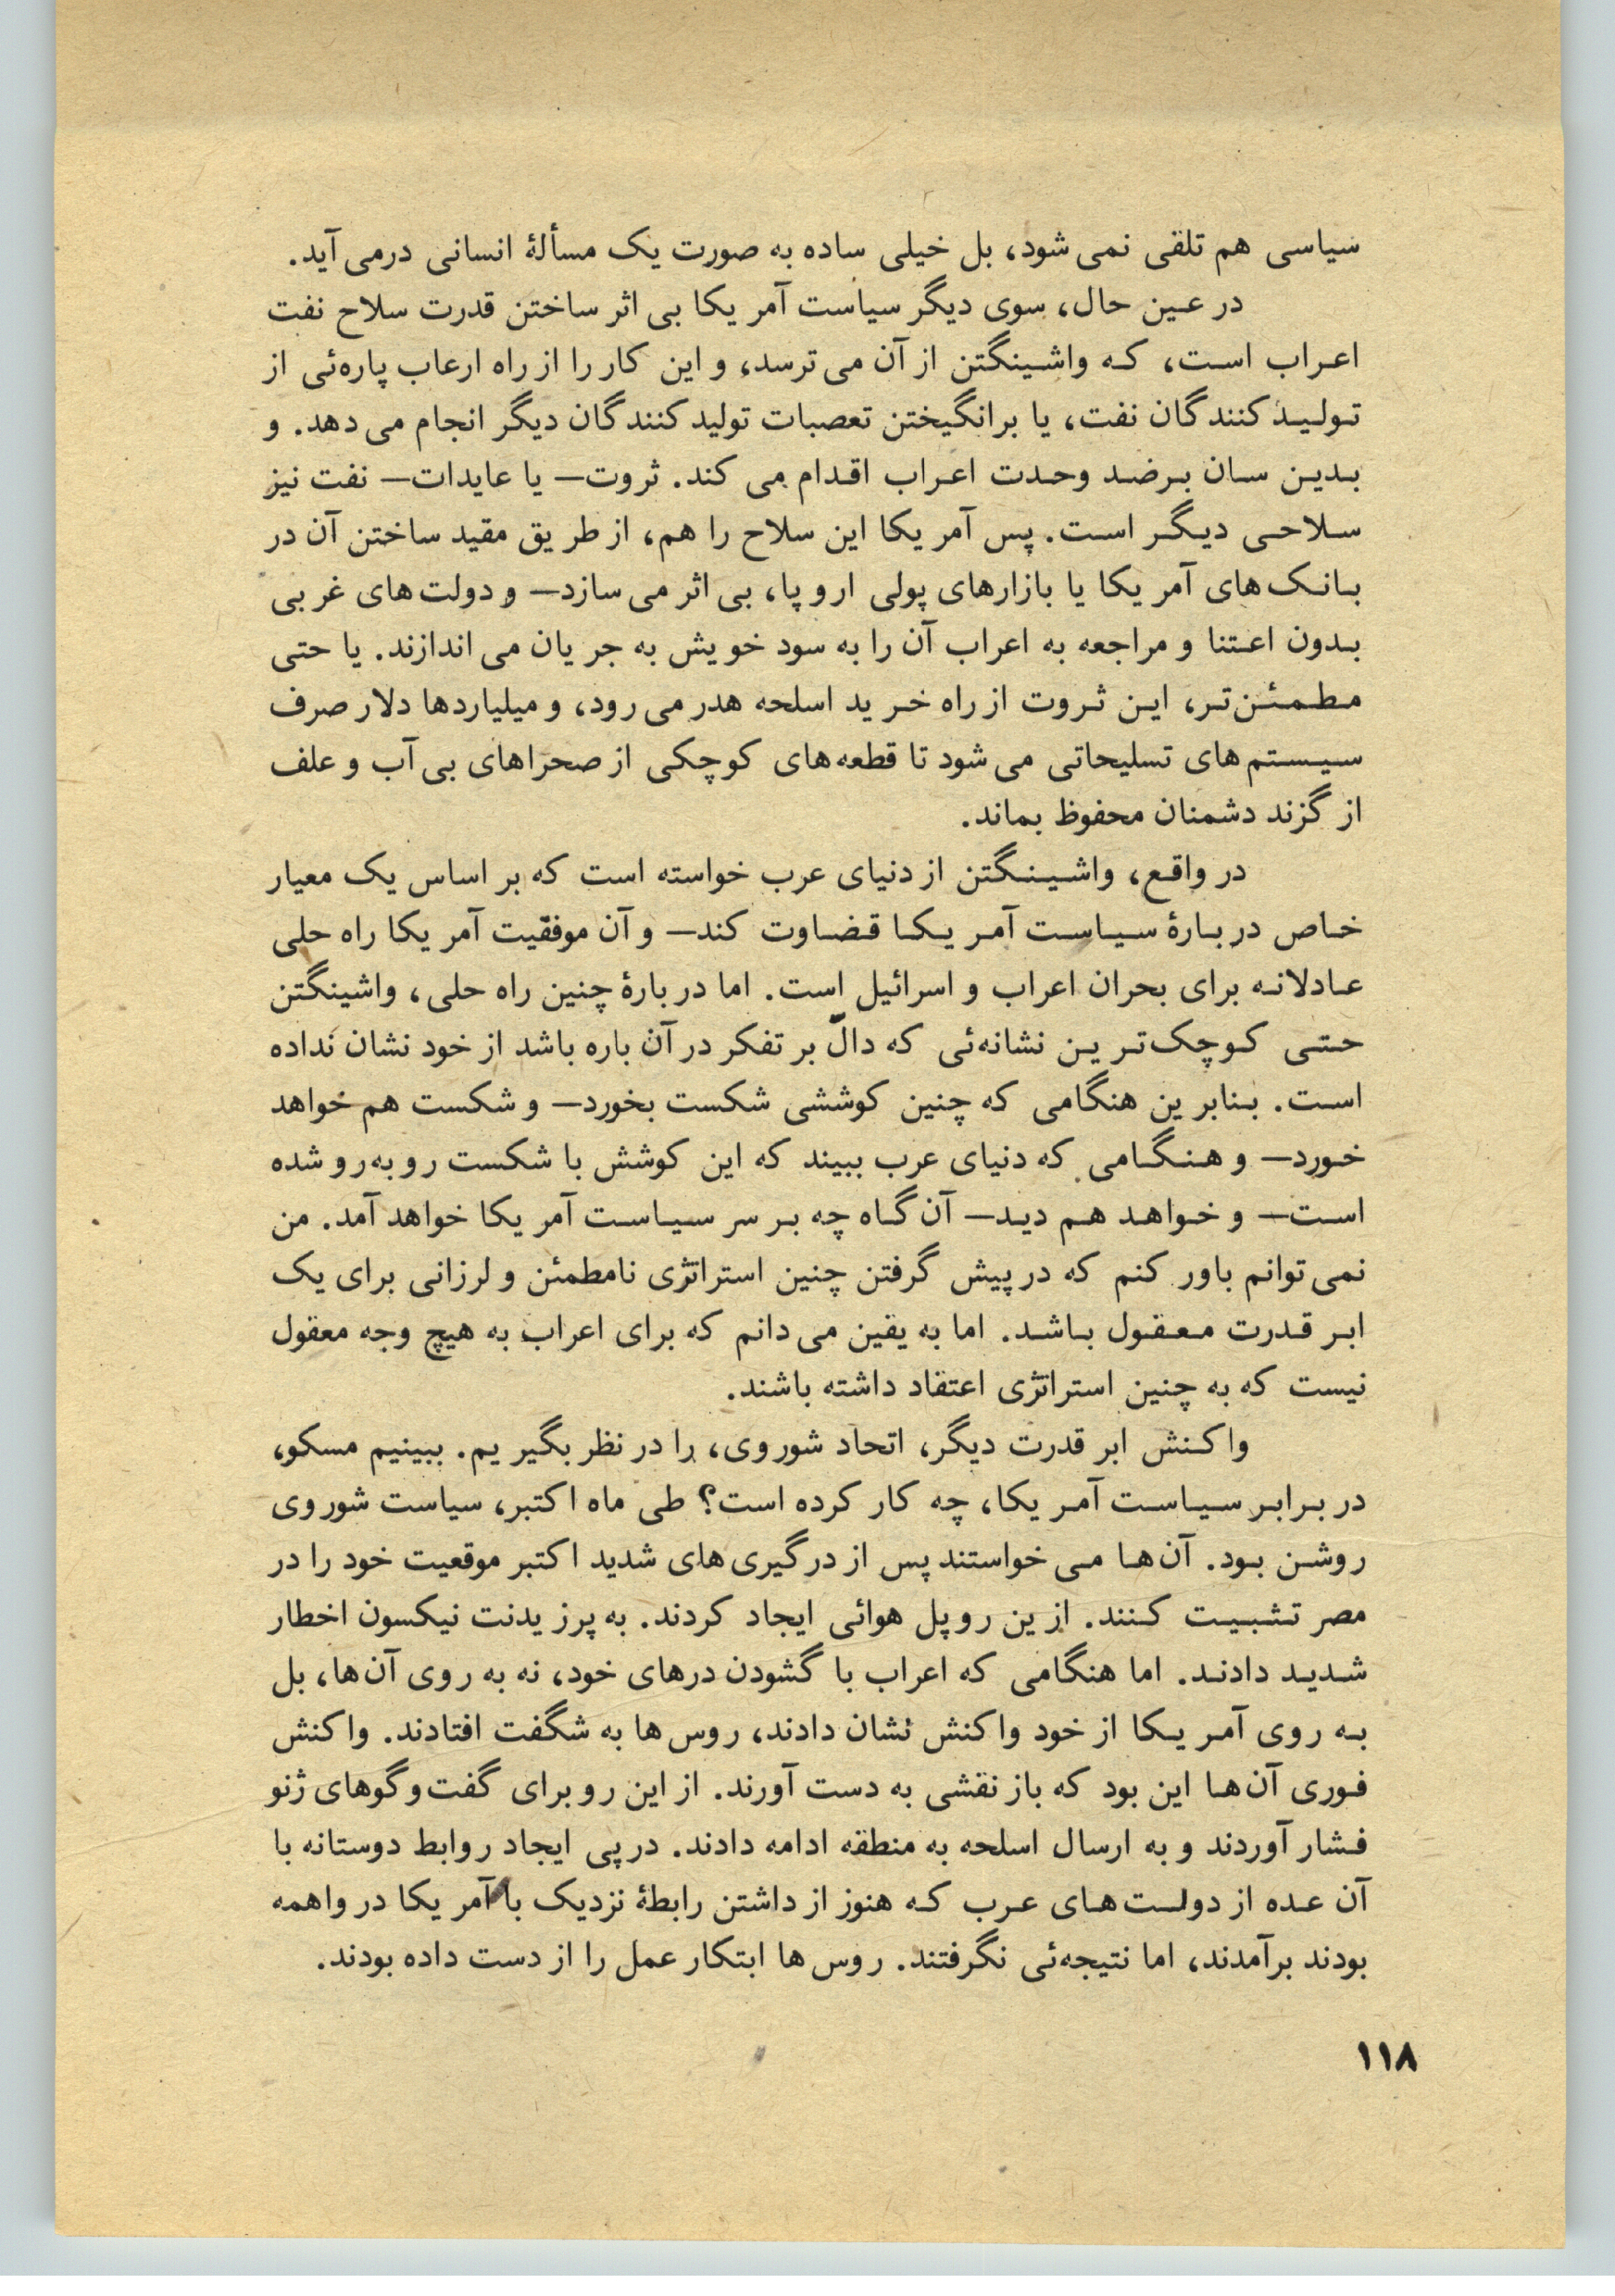 سیاسی هم تلقی نمی‌شود، بل خیلی ساده به صورت یک مسألهٔ انسانی درمی‌آید.
در عین حال، سوی دیگر سیاست آمریکا بی‌اثر ساختن قدرت سلاح نفت
اعراب است، که واشینگتن از آن می‌ترسد، و این کار را از راه ارعاب پاره‌ئی از
تولیدکنندگان نفت، یا برانگیختن تعصبات تولیدکنندگان دیگر انجام می‌دهد. و
بدین سان برضد وحدت اعراب اقدام می‌کند. ثروت— یا عایدات— نفت نیز
سلاحی دیگر است. پس آمریکا این سلاح را هم، از طریق مقید ساختن آن در
بانک‌های آمریکا یا بازارهای پولی اروپا، بی‌اثر می‌سازد— و دولت‌های غربی
بدون اعتنا و مراجعه به اعراب آن را به سود خویش به جریان می‌اندازند. یا حتی
مطمئن‌تر، این ثروت از راه خرید اسلحه هدر می‌رود، و میلیاردها دلار صرف
سیستم‌های تسلیحاتی می‌شود تا قطعه‌های کوچکی از صحراهای بی‌آب و علف
از گزند دشمنان محفوظ بماند.
در واقع، واشینگتن از دنیای عرب خواسته است که بر اساس یک معیار
خاص دربارهٔ سیاست آمریکا قضاوت کند— و آن موفقیت آمریکا راه حلی
عادلانه برای بحران اعراب و اسرائیل است. اما دربارهٔ چنین راه حلی، واشینگتن
حتی کوچک‌ترین نشانه‌ئی که دالّ بر تفکر در آن باره باشد از خود نشان نداده
است. بنابرین هنگامی که چنین کوششی شکست بخورد— و شکست هم خواهد
خورد— و هنگامی که دنیای عرب ببیند که این کوشش با شکست روبه‌رو شده
است— و خواهد هم دید— آن گاه چه بر سر سیاست آمریکا خواهد آمد. من
نمی‌توانم باور کنم که در پیش گرفتن چنین استراتژی نامطمئن و لرزانی برای یک
ابر قدرت معقول باشد. اما به یقین می‌دانم که برای اعراب به هیچ وجه معقول
نیست که به چنین استراتژی اعتقاد داشته باشند.
واکنش ابر قدرت دیگر، اتحاد شوروی، را در نظر بگیریم. ببینیم مسکو،
در برابر سیاست آمریکا، چه کار کرده است؟ طی ماه اکتبر، سیاست شوروی
روشن بود. آن‌ها می‌خواستند پس از درگیری‌های شدید اکتبر موقعیت خود را در
مصر تثبیت کنند. ازین رو پل هوائی ایجاد کردند. به پرزیدنت نیکسون اخطار
شدید دادند. اما هنگامی که اعراب با گشودن درهای خود، نه به روی آن‌ها، بل
به روی آمریکا از خود واکنش نشان دادند، روس‌ها به شگفت افتادند. واکنش
فوری آن‌ها این بود که باز نقشی به دست آورند. از این رو برای گفت‌وگوهای ژنو
فشار آوردند و به ارسال اسلحه به منطقه ادامه دادند. در پی ایجاد روابط دوستانه با
آن عده از دولت‌های عرب که هنوز از داشتن رابطهٔ نزدیک با آمریکا در واهمه
بودند برآمدند، اما نتیجه‌ئی نگرفتند. روس‌ها ابتکار عمل را از دست داده بودند.
۱۱۸